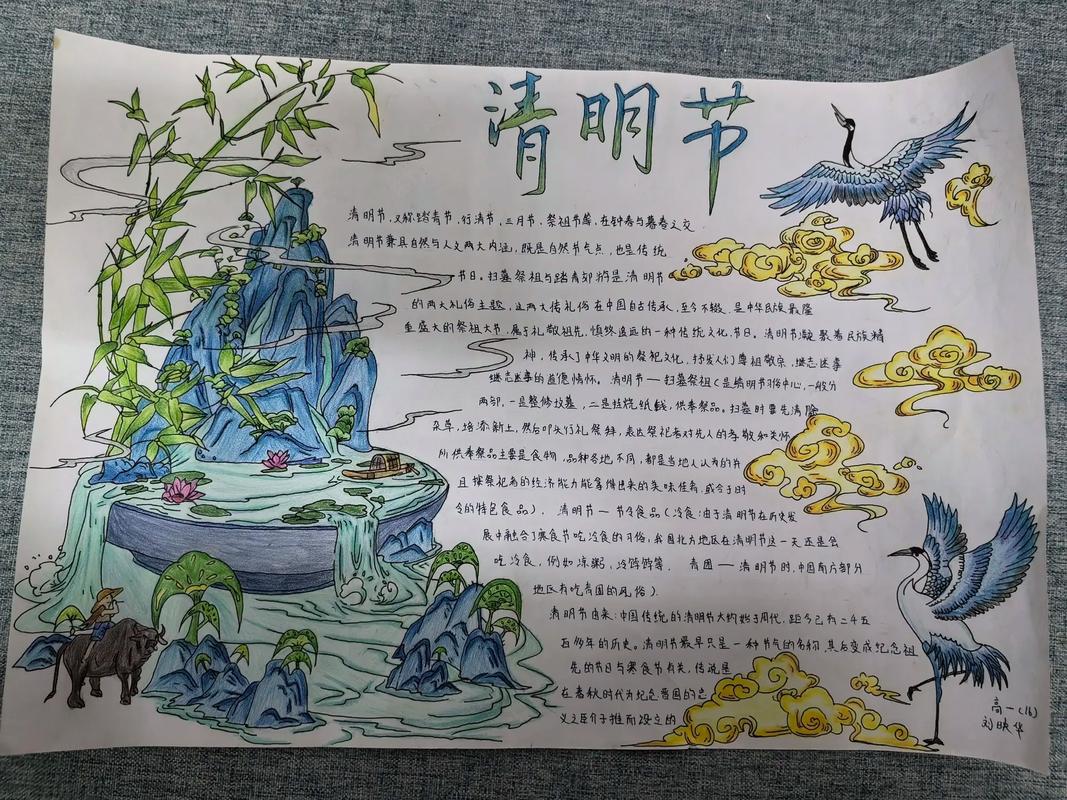 清明节
清明节,又称踏青节、行清节、三月节、祭祖节等,在仲春与暮春之交
清明节兼具自然与人文两大内涵,既是自然节气点,也是传统
节日。扫墓祭祖与踏青郊游是清明节
的两大礼俗主题,这两大传礼俗在中国自古传承,至今不辍。是中华民族最隆
重盛大的祭祖大节,属于礼敬祖先,慎终追远的一种传统文化节日。清明节凝聚着民族精
神,传承了中华文明的祭祀文化,抒发人们尊祖敬宗,继志述事
继志述事的道德情怀。清明节——扫墓祭祖(是清明节习俗中心,一般分
两部,一是整修坟墓,二是挂烧纸钱,供奉祭品。扫墓时要先清除
杂草,培添新土,然后叩头行礼祭拜,表达祭祀者对先人的孝敬和关怀
所供奉祭品主要是食物,品种各地不同,都是当地人认为的并
且按祭祀者的经济能力能拿得出来的美味佳肴,或合于时
令的特色食品)。清明节——节令食品(冷食:由于清明节在历史发
展中融合了寒食节吃冷食的习俗,我国北方地区在清明节这一天还是会
吃冷食,例如凉粥,冷饽饽等, 青团——清明节时,中国南方部分
地区有吃青团的风俗)
清明节由来:中国传统的清明节大约始于周代,距今已有二千五
百多年的历史。清明节最早只是一种节气的名称,其后变成纪念祖
先的节日与寒食节有关,传说是
在春秋时代为纪念晋国的忠
义之臣介子推而设立的
高一(16)
刘映华